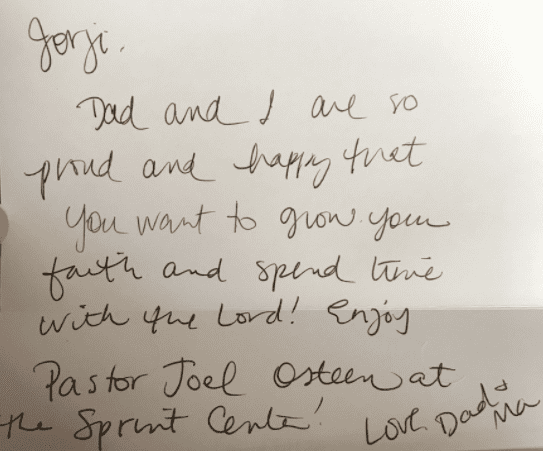 Jorji.
Dad and I are so
proud and happy that
you want to grow your
faith and spend time
with the Lord! Enjoy
Pastor Joel Osteen at
the Sprint Center!
Love Dad & Ma